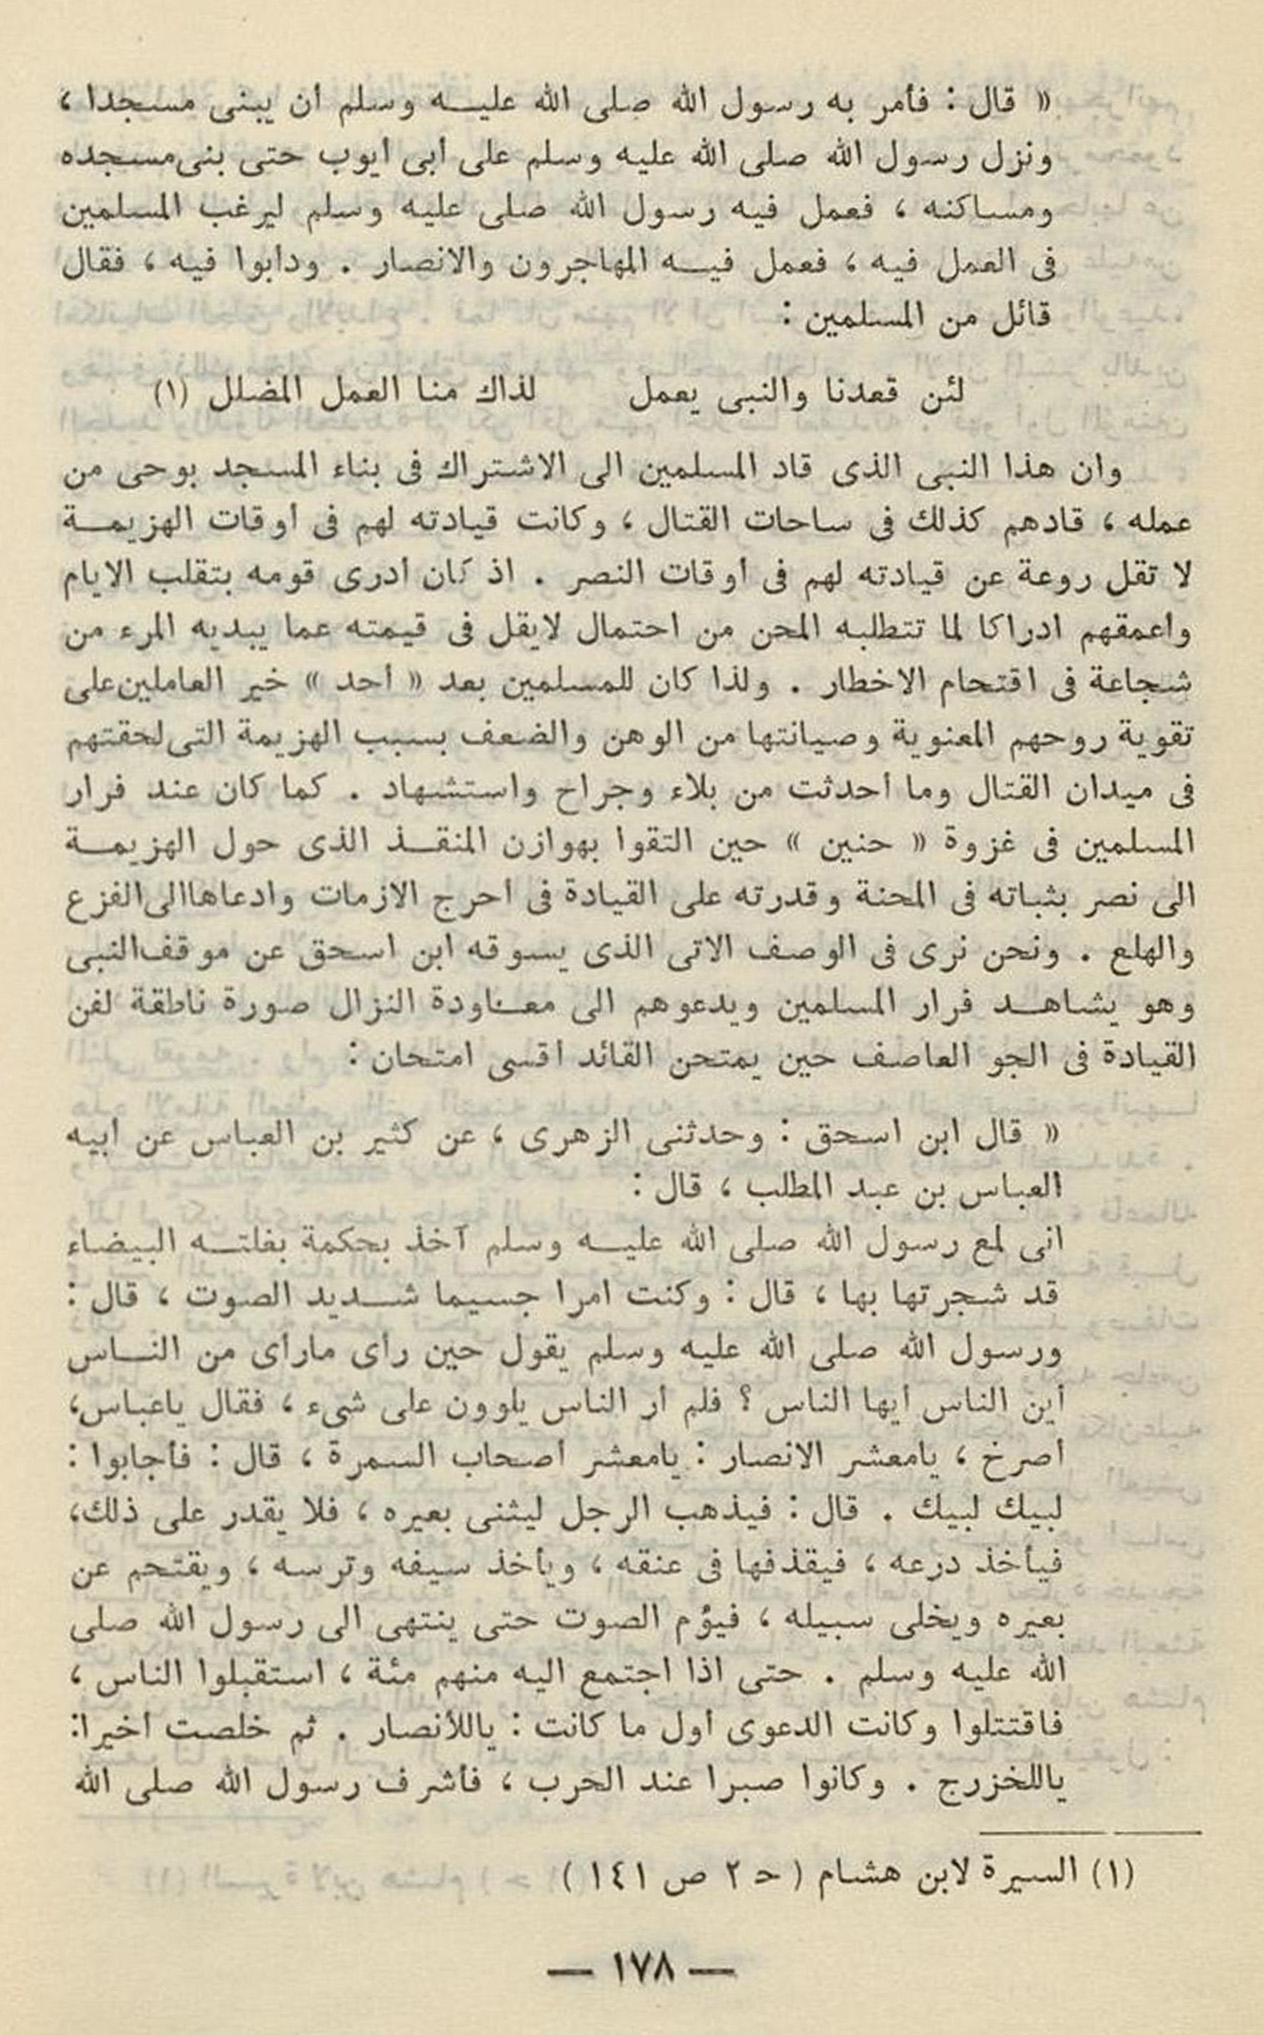 « قال : فأمر به رسول الله صلى الله عليه وسلم أن يبنى مسجدا ،
ونزل رسول الله صلى الله عليه وسلم على أبى أيوب حتى بنى مسجده
ومساكنه ، فعمل فيه رسول الله صلى عليه وسلم ليرغب المسلمين
فى العمل فيه ، فعمل فيه المهاجرون والانصار . ودابوا فيه ، فقال
قائل من المسلمين :
لئن قعدنا والنبى يعمل لذاك منا العمل المضلل (١)
وان هذا النبى الذى قاد المسلمين الى الاشتراك فى بناء المسجد بوحى من
عمله ، قادهم كذلك فى ساحات القتال ، وكانت قيادته لهم فى أوقات الهزيمة
لا تقل روعة عن قيادته لهم فى أوقات النصر . اذ كان أدرى قومه بتقلب الايام
واعمقهم ادراكا لما تتطلبه المحن من احتمال لايقل فى قيمته عما يبديه المرء من
شجاعة فى اقتحام الاخطار . ولذا كان للمسلمين بعد « أحد » خير العاملين على
تقوية روحهم المعنوية وصيانتها من الوهن والضعف بسبب الهزيمة التى لحقتهم
فى ميدان القتال وما أحدثت من بلاء وجراح واستشهاد . كما كان عند فرار
المسلمين فى غزوة « حنين » حين التقوا بهوازن المنقذ الذى حول الهزيمة
الى نصر بثباته فى المحنة وقدرته على القيادة فى أحرج الازمات وادعاها الى الفزع
والهلع . ونحن نرى فى الوصف الاتى الذى يسوقه ابن اسحق عن موقف النبى
وهو يشاهد فرار المسلمين ويدعوهم الى معاودة النزال صورة ناطقة لفن
القيادة فى الجو العاصف حين يمتحن القائد اقسى امتحان :
« قال ابن اسحق : وحدثنى الزهرى ، عن كثير بن العباس عن أبيه
العباس بن عبد المطلب ، قال :
انى لمع رسول الله صلى الله عليه وسلم آخذ بحكمة بغلته البيضاء
قد شجرتها بها ، قال : وكنت امرا جسيما شديد الصوت ، قال :
ورسول الله صلى الله عليه وسلم يقول حين رأى مارأى من الناس
أين الناس أيها الناس ؟ فلم أر الناس يلوون على شىء ، فقال ياعباس،
أصرخ ، يامعشر الانصار : يامعشر أصحاب السمرة ، قال : فأجابوا :
لبيك لبيك . قال : فيذهب الرجل ليثنى بعيره ، فلا يقدر على ذلك،
فيأخذ درعه ، فيقذفها فى عنقه ، ويأخذ سيفه وترسه ، ويقتحم عن
بعيره ويخلى سبيله ، فيؤم الصوت حتى ينتهى الى رسول الله صلى
الله عليه وسلم . حتى اذا اجتمع اليه منهم مئة ، استقبلوا الناس ،
فاقتتلوا وكانت الدعوى أول ما كانت : ياللأنصار . ثم خلصت أخيرا:
ياللخزرج . وكانوا صبرا عند الحرب ، فأشرف رسول الله صلى الله
(١) السيرة لابن هشام ( حـ ٢ ص ١٤١ )
— ١٧٨ —